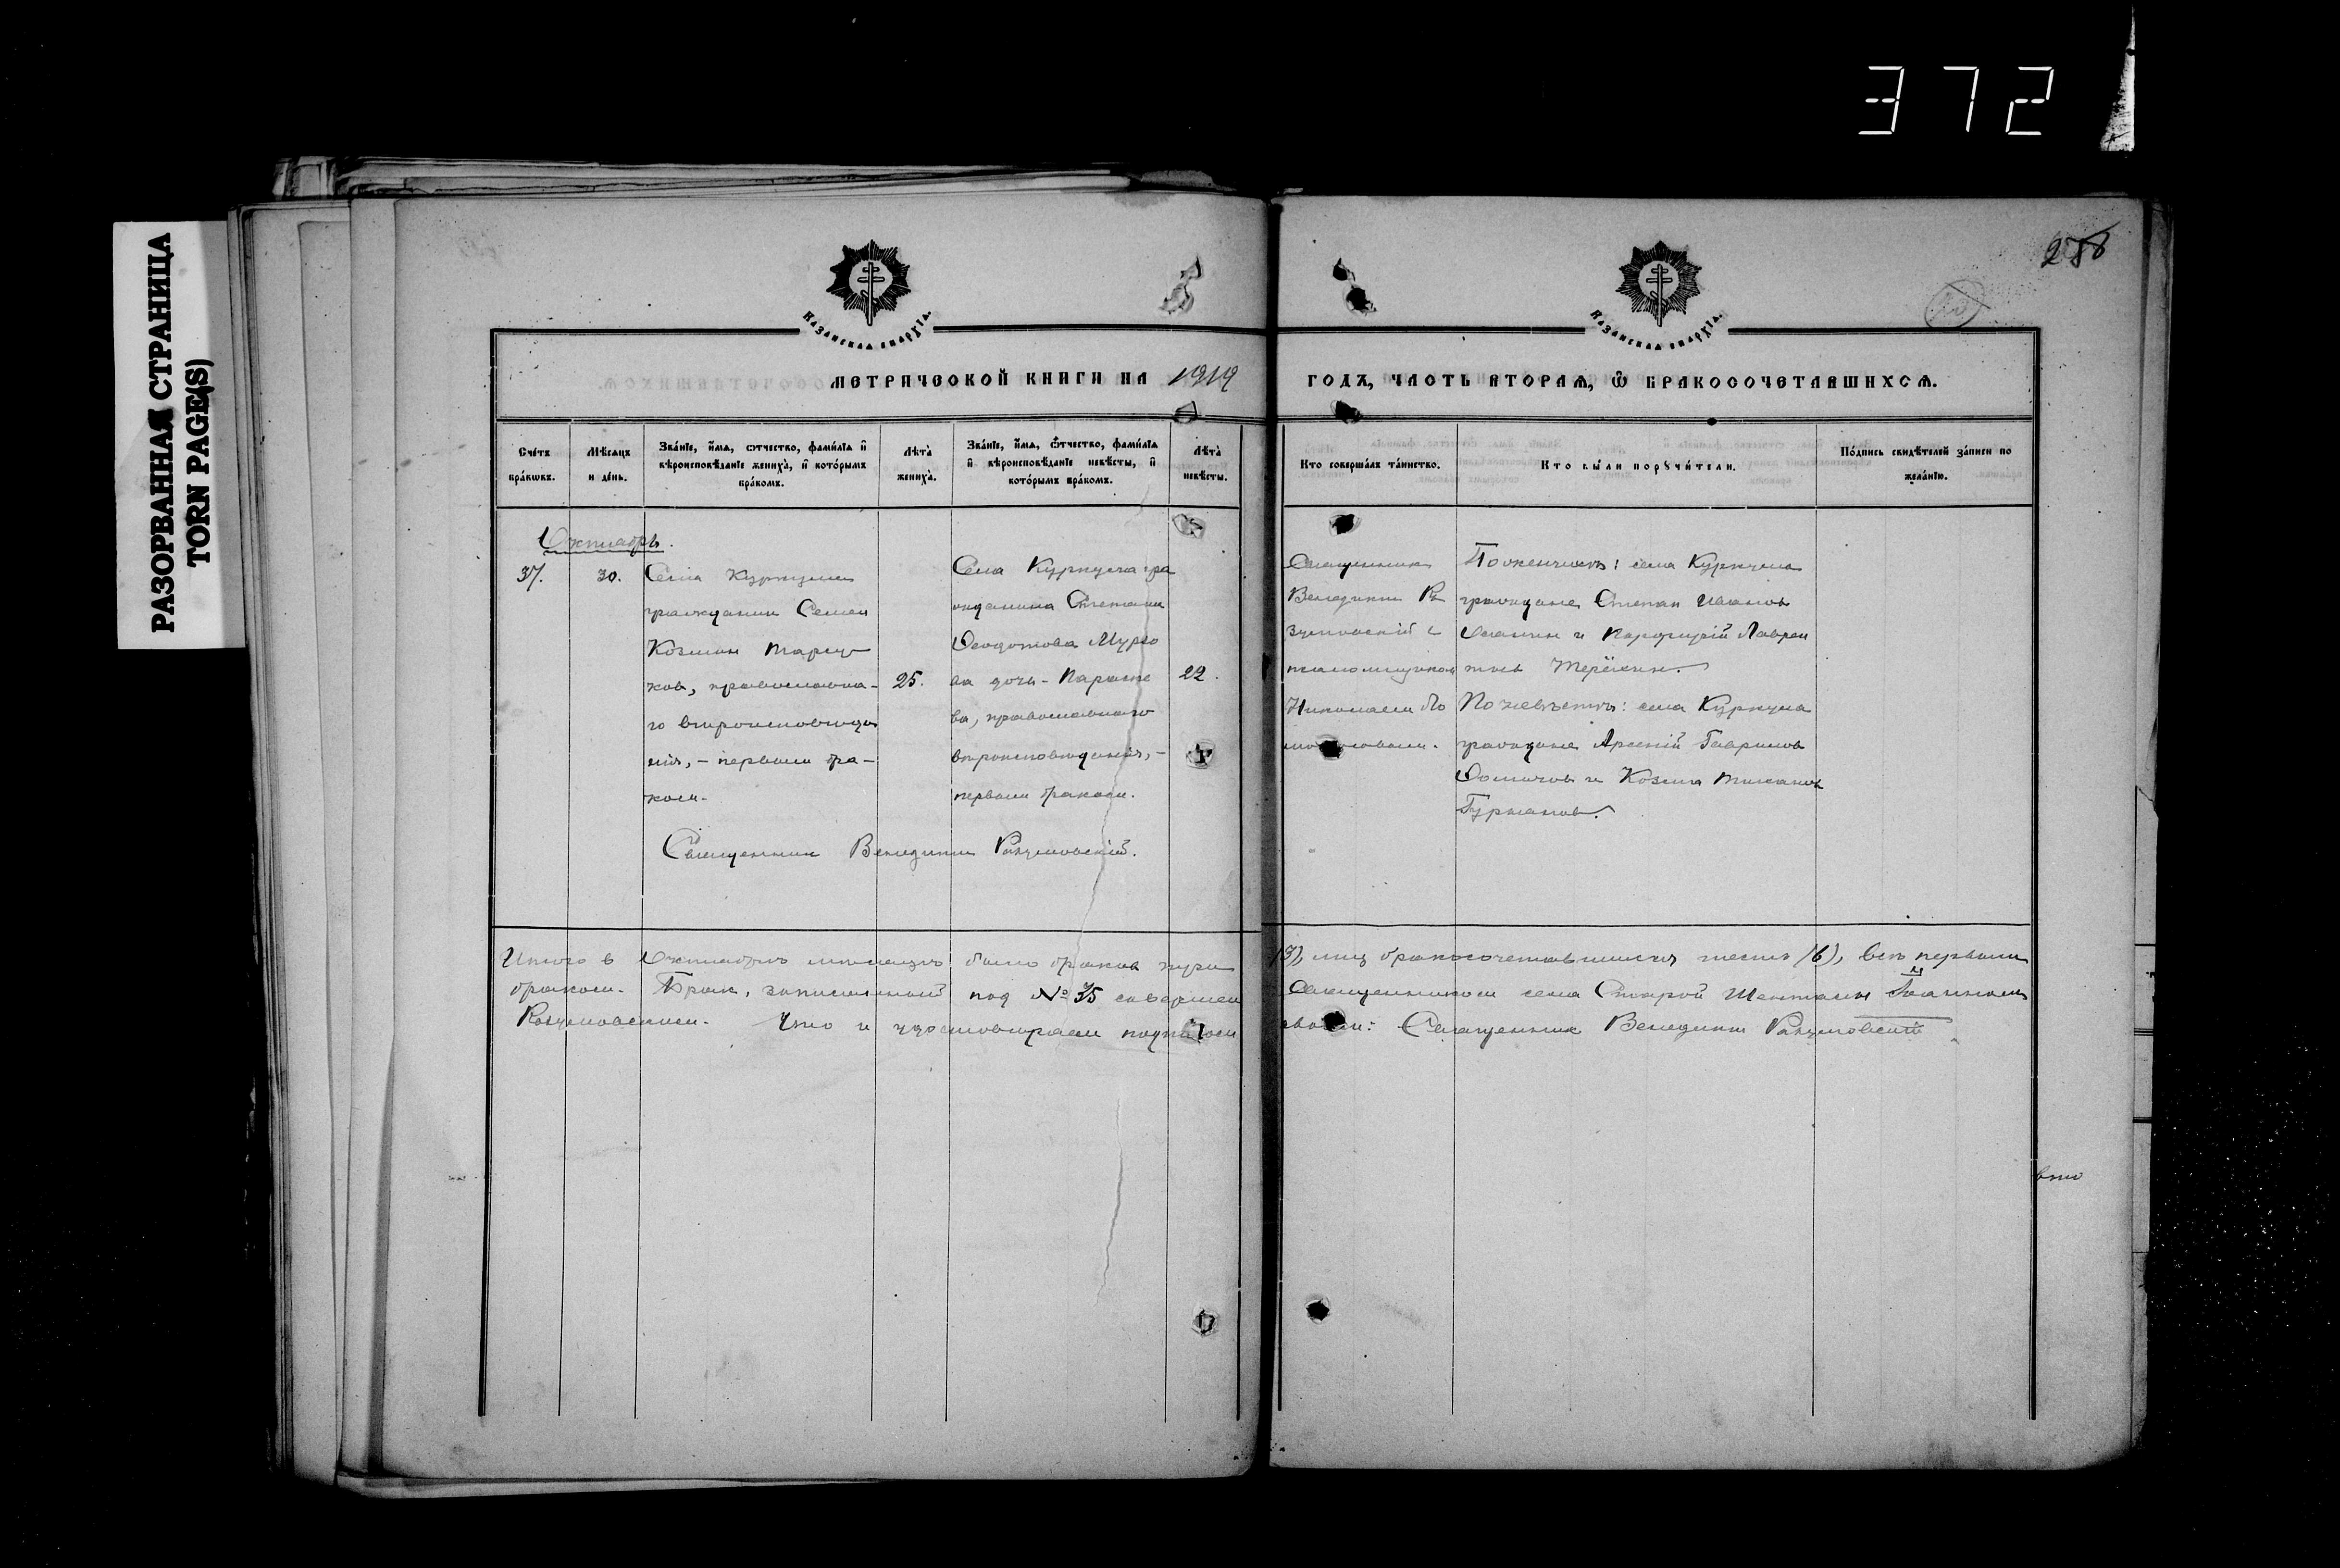 372
РАЗОРВАННАЯ СТРАНИЦА
TORN PAGE(S)
288
КАЗАНСКАЯ ЕПАРХІЯ.
КАЗАНСКАЯ ЕПАРХІЯ.
МЕТРИЧЕСКОЙ КНИГИ НА 1919 ГОДЪ, ЧАСТЬ ВТОРАЯ, Ѿ БРАКОСОЧЕТАВШИХСЯ.
Счетъ браковъ.
Мѣсяцъ и день.
Званіе, имя, отчество, фамилія и
вѣроисповѣданіе жениха, и которымъ
бракомъ.
Лѣта жениха.
Званіе, имя, отчество, фамилія
и вѣроисповѣданіе невѣсты, и
которымъ бракомъ.
Лѣта невѣсты.
Кто совершалъ таинство.
Кто были поручители.
Подпись свидѣтелей записи по
желанію.
Октябрь.
37.
30.
Села Куркуля
гражданин Семен
Козмин
православна-
го вѣроисповѣда
нія, - первым бра-
ком.
25.
Села Куркуля гра
жданина Степана
Ѳеодотова
дочь - Параске
ва, православнаго
вѣроисповѣданія, -
первым браком.
22.
Священник
Венедикт Ра
зумовскій с
псаломщиком
Николаем
По женихѣ: села Куркуля
граждане Степан Иванов
и Порфирій Лаврен
тьев
По невѣстѣ: села Куркуля
граждане Арсеній Гаврилов
и Козма
Священник Венедикт Разумовскій.
Итого в Октябрѣ мѣсяцѣ было браков три (3), лиц бракосочетавшихся шесть (6), всѣ первым
браком. Брак, записанный под № 35 совершен Священником села Старой Шенталы Іоанном
Разумовским. Что и удостовѣряем подписом своим: Священник Венедикт Разумовскій